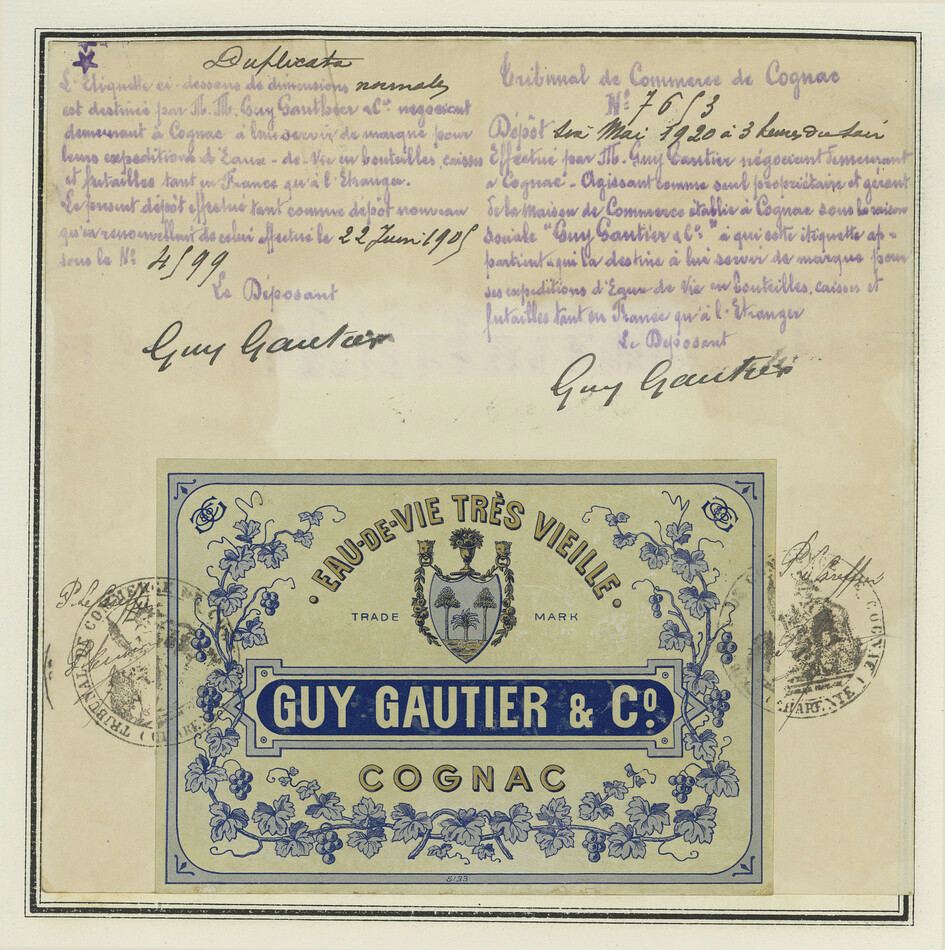 Duplicata
L'Etiquette ci-dessous de dimensions normales
est destinée par M.M. Guy Gauthier & Cº négociant
demeurant à Cognac à leur servir de marque pour
leurs expéditions d'Eaux-de-Vie en bouteilles, caisses
et futailles tant en France qu'à l'Etranger.
Le présent dépôt effectué tant comme dépôt nouveau
qu'en renouvellant de celui effectué le 22 Juin 1905
sous le Nº 4599
Le Déposant
Guy Gautier
Tribunal de Commerce de Cognac
Nº 7653
Dépôt six Mai 1920 à 3 heures du soir
Effectué par M. Guy Gautier négociant demeurant
à Cognac - Agissant comme seul propriétaire et gérant
de la Maison de Commerce établie à Cognac sous la raison
sociale "Guy Gautier & Cº" à qui cette étiquette ap=
partient & qui la destine à lui servir de marque pour
ses expéditions d'Eaux-de-Vie en bouteilles, caisses et
futailles tant en France qu'à l'Etranger
Le Déposant
Guy Gautier
EAU-DE-VIE TRÈS VIEILLE
TRADE MARK
GUY GAUTIER & Cº.
COGNAC
5133
TRIBUNAL DE COMMERCE DE
COGNAC
(CHARENTE)